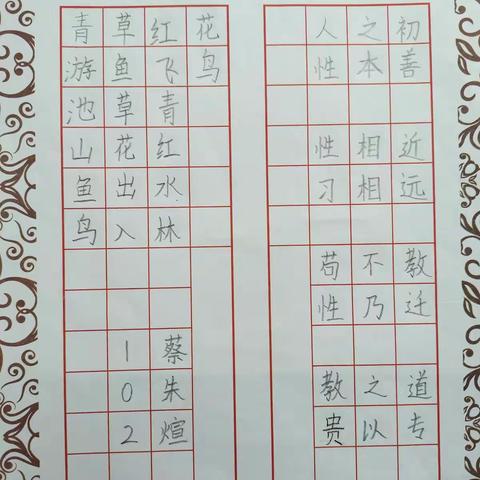 青草红花
游鱼飞鸟
池草青
山花红
鱼出水
鸟入林
102
蔡朱煊
人之初
性本善
性相近
习相远
苟不教
性乃迁
教之道
贵以专